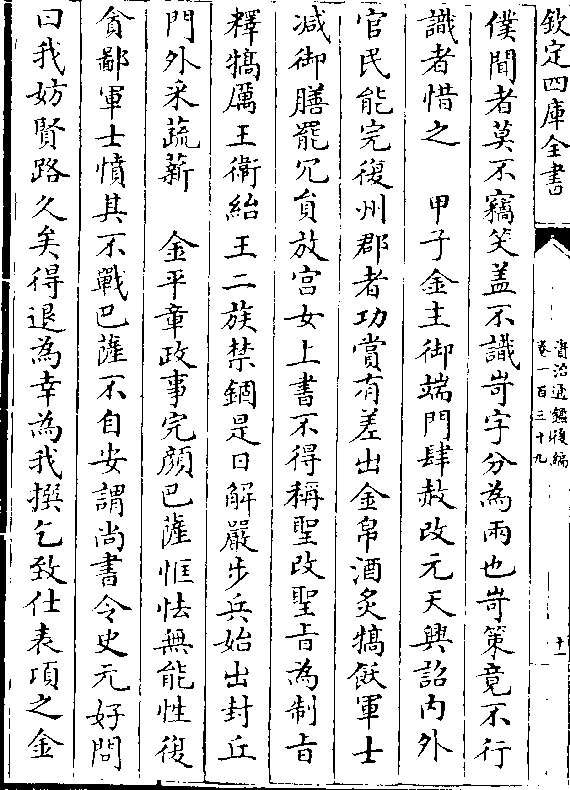 欽定四庫全書
資治通鑑後編
卷一百三十九
十一
僕聞者莫不竊笑盖不識岢字分為兩也岢策竟不行
識者惜之　甲子金主御端門肆赦改元天興詔内外
官民能完復州郡者功賞有差出金帛酒炙犒飫軍士
减御膳罷冗員放宫女上書不得稱聖改聖㫖為制㫖
釋犒厲王衛紹王二族禁錮是日解嚴步兵始出封丘
門外采蔬薪　金平章政事完顔巴薩恇怯無能性復
貪鄙軍士憤其不戰巴薩不自安謂尚書令史元好問
曰我妨賢路久矣得退為幸為我撰乞致仕表項之金